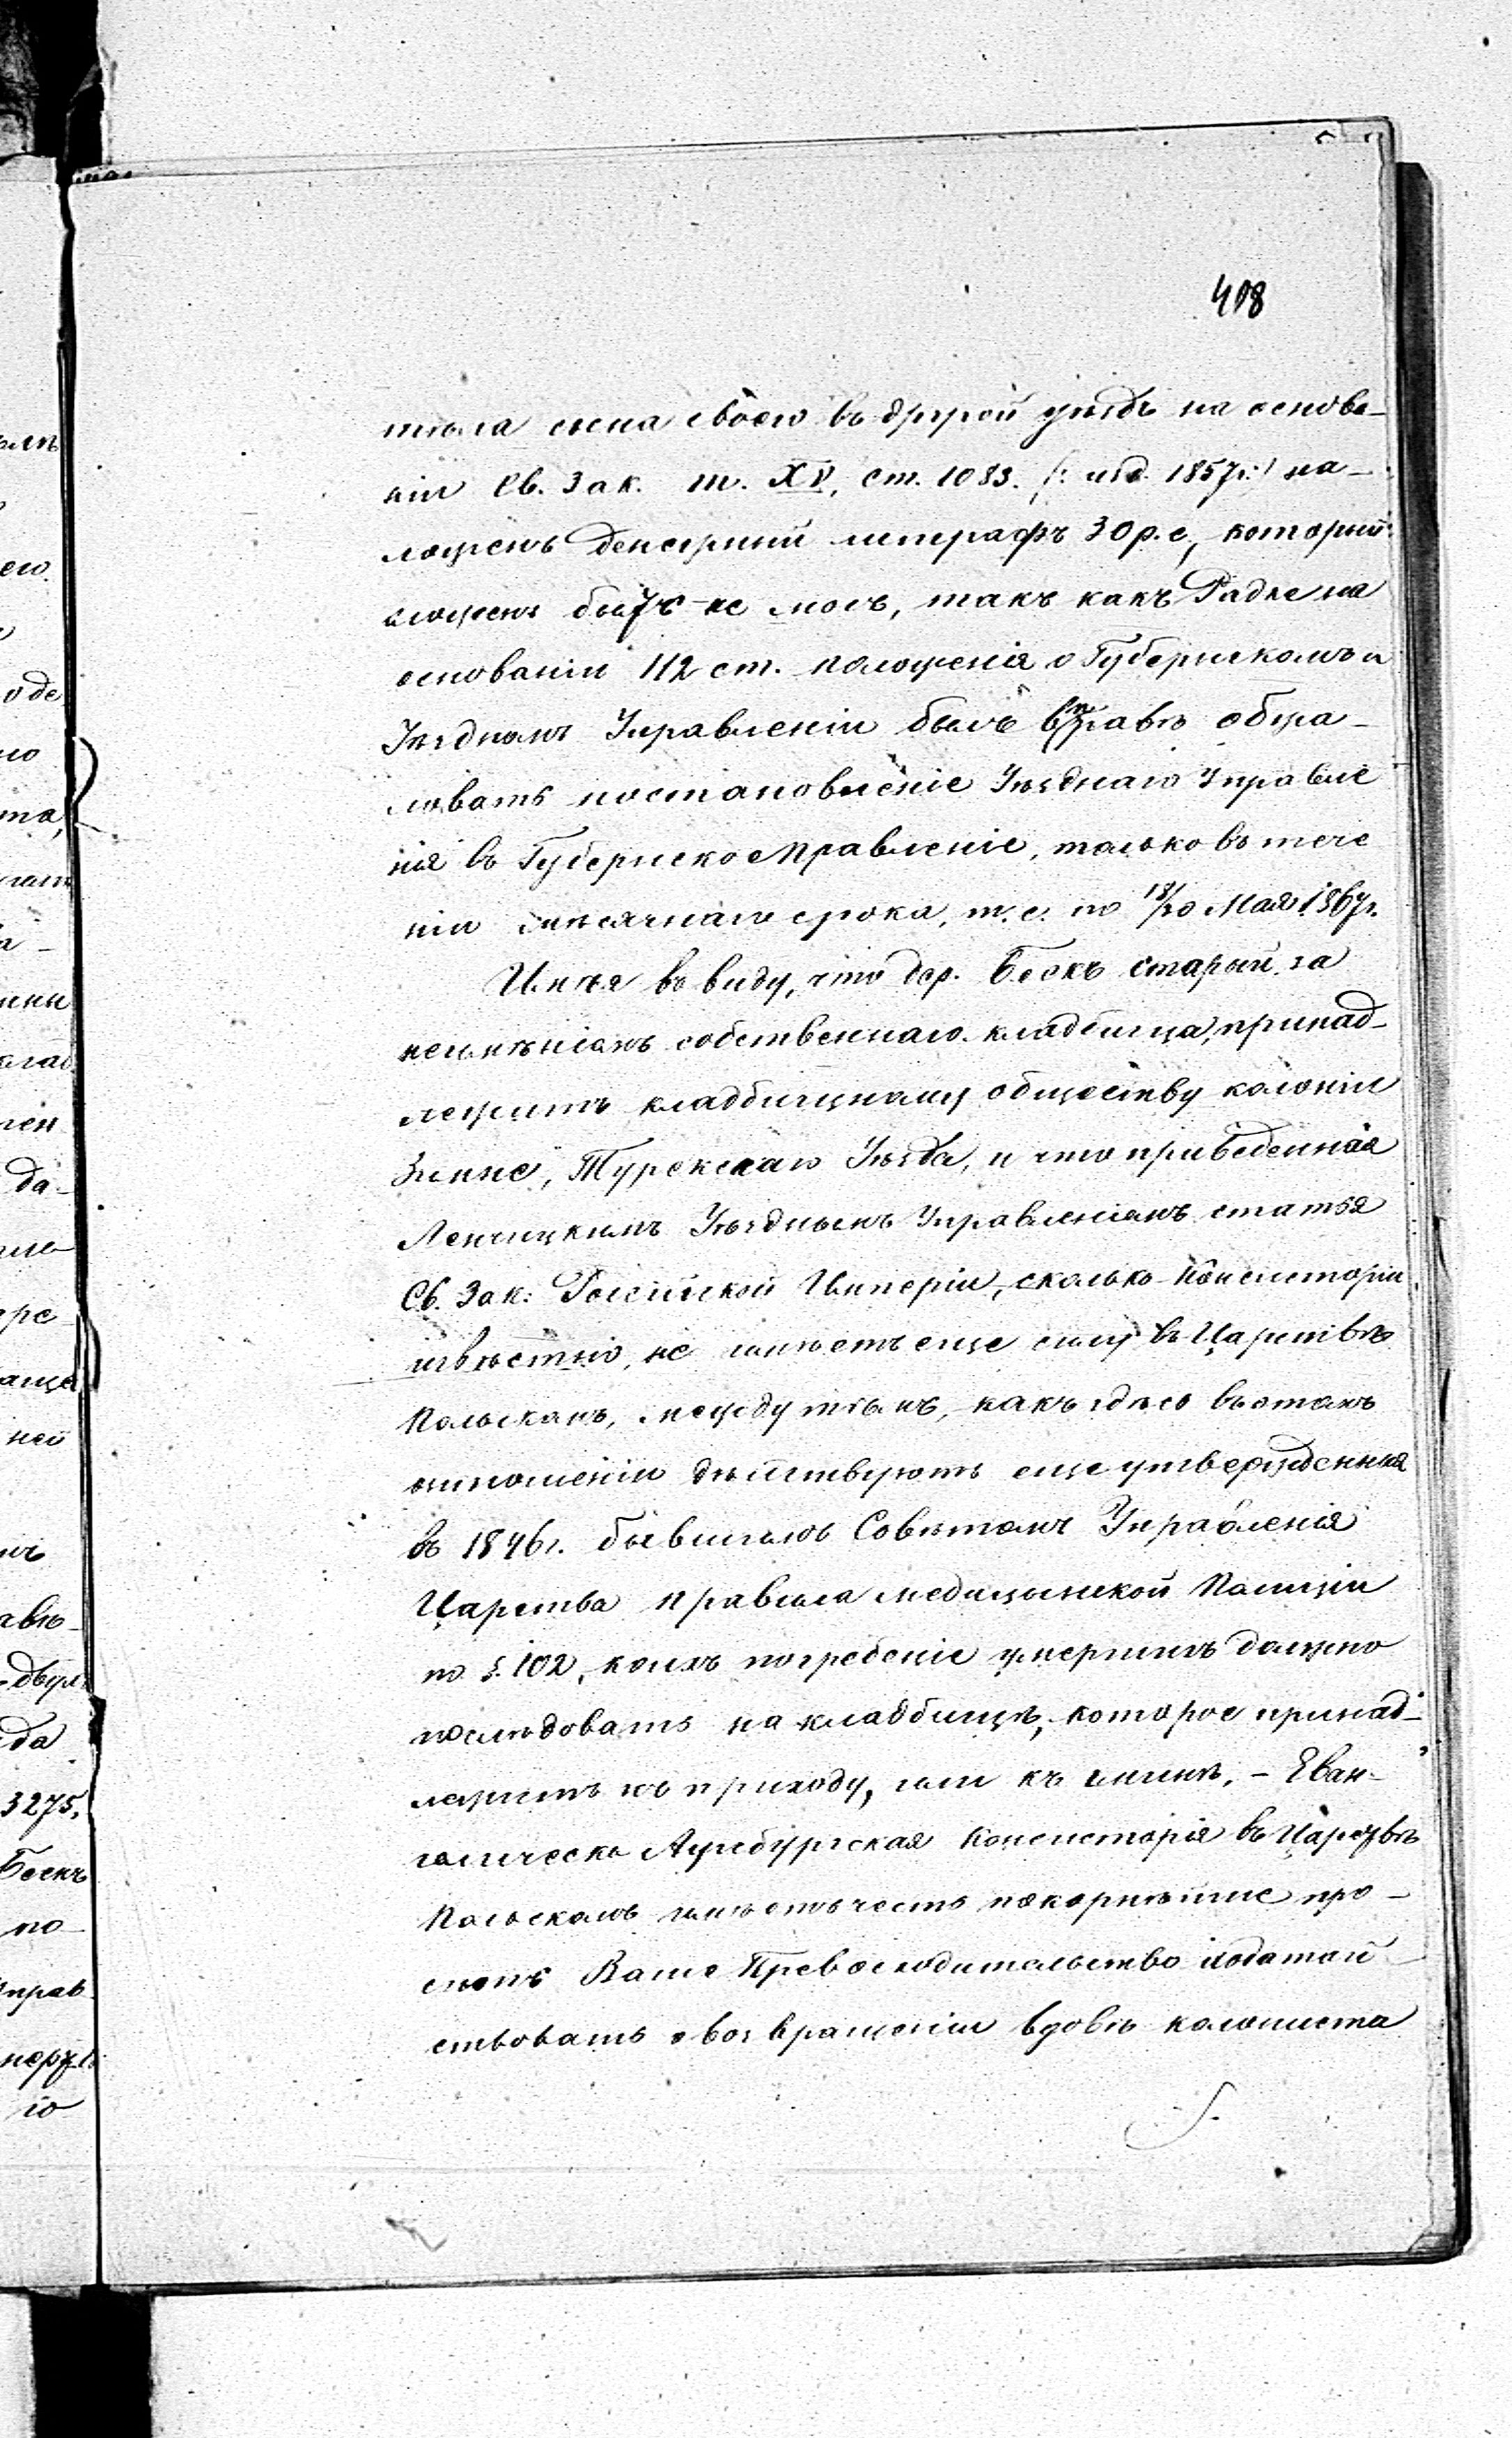 408
тѣла сына своего въ другой уѣздъ на основа-
ніи Св. Зак. т. XV, ст. 1083. /: изд. 1857 г:/ на-
ложенъ денежный штрафъ 30 р. с, который
сложенъ быть не могъ, такъ какъ Радке на
основаніи 112 ст. положенія о Губернскомъ и
Уѣздномъ Управленіи былъ вправѣ обжа-
ловать постановленіе Уѣзднаго Управле
нія въ Губернское Правленіе, только въ тече
ніи мѣсячнаго срока, т. е. по 18/30 Мая 1867 г.
Имѣя въ виду, что дер. Бескъ старый за
неимѣніемъ собственнаго кладбища, принад-
лежитъ кладбищному обществу колоніи
Зимне, Турекскаго Уѣзда, и что приведенная
Ленчицкимъ Уѣзднымъ Управленіемъ статья
Св. Зак: Россійской Имперіи, сколько Консисторіи
извѣстно, не имѣетъ еще силы въ Царствѣ
Польскомъ, между тѣмъ, какъ здѣсь въ этомъ
отношеніи дѣйствуютъ еще утвержденныя
въ 1846 г. бывшимъ Совѣтомъ Управленія
Царства правила медицынской Полиціи
по §. 102, коихъ погребеніе умершихъ должно
послѣдовать на кладбищѣ, которое принад-
лежитъ къ приходу, или къ гминѣ. – Еван-
гелическо Аугсбургская Консисторія въ Царствѣ
Польскомъ имѣетъ честь покорнѣйше про-
ситъ Ваше Превосходительство ходатай-
ствовать о возвращеніи вдовѣ колониста